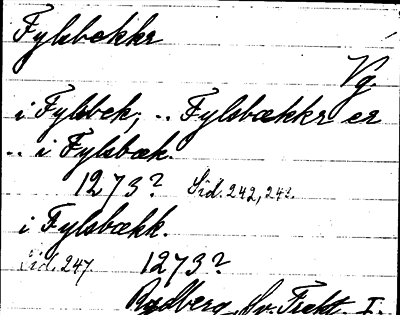 Fylsbækkr
Vg
i Fylsbek, .. Fylsbækkr er
.. i Fylsbæk.
1273? Sid. 242, 242.
i Fylsbækk.
Sid. 247 1273?
Rydberg Sv. Trakt. I.